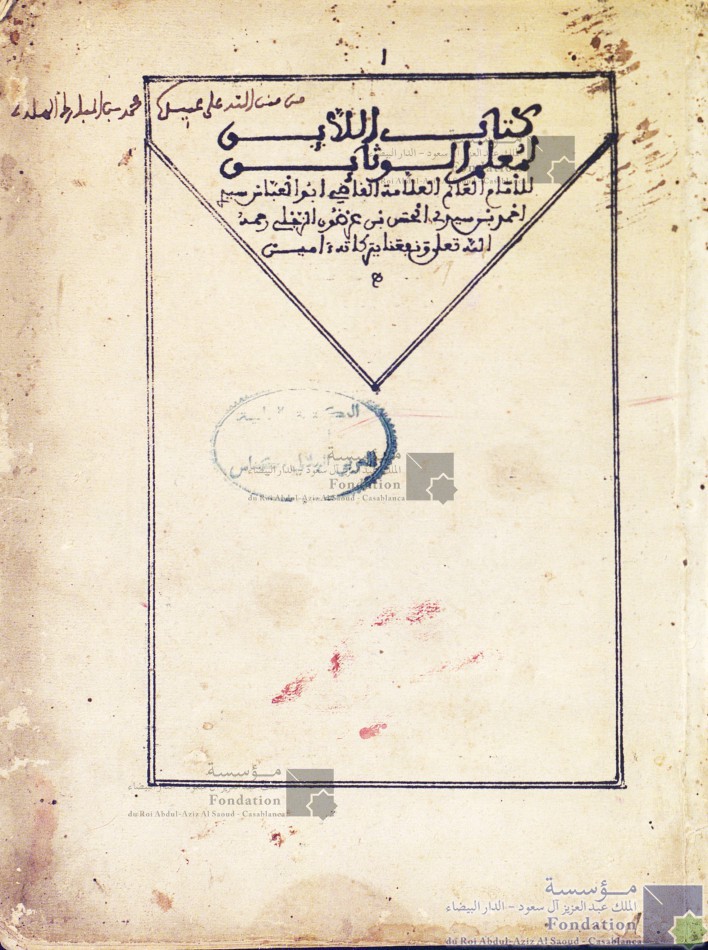 ١
من منن الله على عبيده محمد بن المبارك الهلالي
كتاب اللائق
لمعلم الوثائق
للامام العالم العلامة القاضي ابو العباس سيدي
احمد بن سيدي الحسن بن عرضون الزجلي رحمه
الله تعلى ونفعنا ببركاته ءامين
مؤسسة
الملك عبد العزيز آل سعود - الدار البيضاء
Fondation
du Roi Abdul-Aziz Al Saoud - Casablanca
مؤسسة
Fondation
du Roi Abdul-Aziz Al Saoud - Casablanca
مؤسسة
الملك عبد العزيز آل سعود – الدار البيضاء
Fondation
du Roi Abdul-Aziz Al Saoud - Casablanca